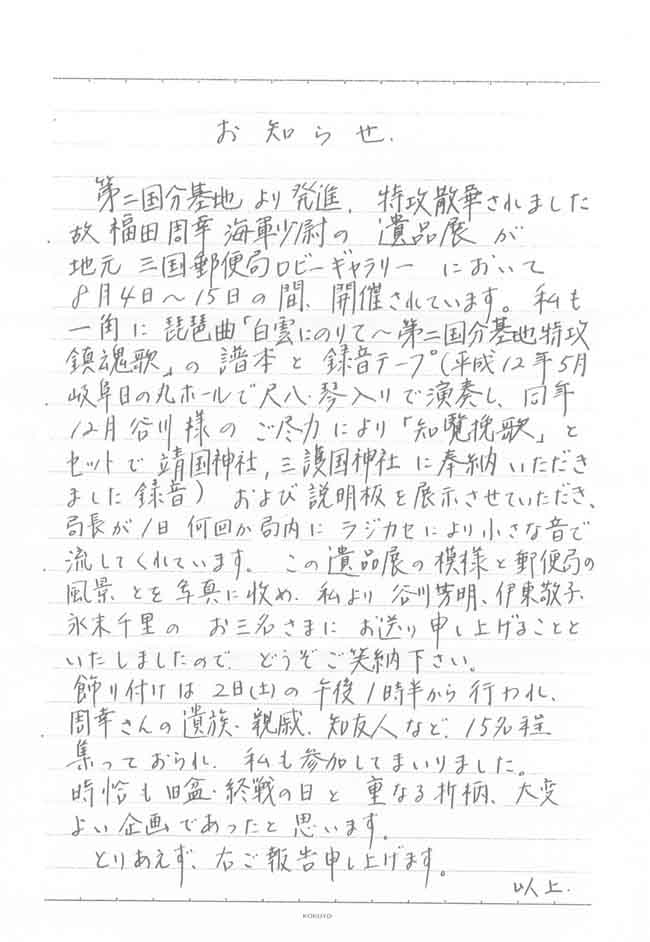 お知らせ.
第二国分基地より発進、特攻散華されました
故福田周幸海軍少尉の遺品展が
地元三国郵便局ロビーギャラリーにおいて
8月4日〜15日の間、開催されています。私も
一角に琵琶曲「白雲にのりて〜第二国分基地特攻
鎮魂歌」の譜本と録音テープ(平成12年5月
岐阜日の丸ホールで尺八・琴入りで演奏し、同年
12月谷川様のご尽力により「知覧挽歌」と
セットで靖国神社,三護国神社に奉納いただき
ました録音)および説明板を展示させていただき、
局長が1日何回か局内にラジカセにより小さな音で
流してくれています。この遺品展の模様と郵便局の
風景とを写真に収め、私より谷川芳明、伊東敬子、
永末千里のお三名さまにお送り申し上げることと
いたしましたので、どうぞご笑納下さい。
飾り付けは2日(土)の午後1時半から行われ、
周幸さんの遺族・親戚、知友人など、15名程
集っておられ、私も参加してまいりました。
時恰も旧盆・終戦の日と重なる折柄、大変
よい企画であったと思います。
とりあえず、右ご報告申し上げます。
以上.
KOKUYO